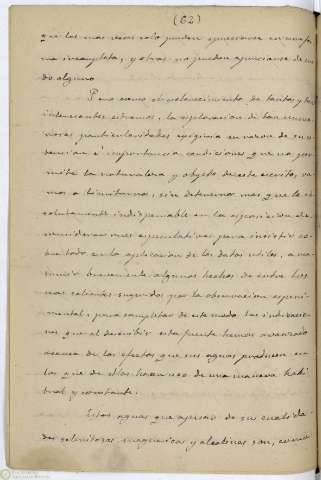 (62)
que las mas veces solo pueden apreciarse en una for-
ma incompleta, y otras no pueden apreciarse de mo-
do alguno.
Pero como el esclarecimiento de tantos y tan
interesantes estremos, la esplanacion de tan nume-
rosas particularidades exigiria en razon de su
estension é importancia condiciones que no per-
mite la naturaleza y objeto de este escrito, va-
mos a limitarnos, sin detenernos mas que lo ab-
solutamente indispensable en la esposicion de
consideraciones especulativas para insistir so-
bre todo en la aplicacion de los datos utiles, a reu-
nir brevemente algunos hechos de entre los
mas salientes sugeridos por la observacion esperi-
mental, para completar de este modo las indicacio-
nes que al describir esta fuente hemos avanzado
acerca de los efectos que sus aguas producen en
los que de ellas hacen uso de una manera habi-
tual y constante.
Estas aguas que apesar de sus cualida-
des selenitosas magnesicas y alcalinas son, como